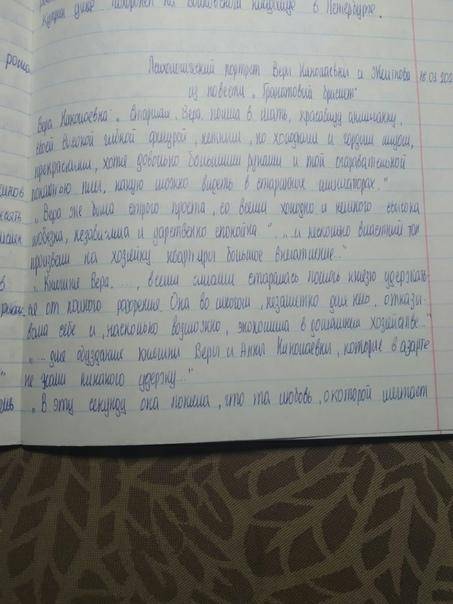 кузин умер похоронен на Волковском кладбище в Петербурге.
Психологический портрет Веры Николаевны и Желткова 18.03.202
из повести „Гранатовый браслет"
Вера Николаевна: „Старшая, Вера, пошла в мать, красавицу англичанку,
своей высокой гибкой фигурой, нежным, но холодным и гордым лицом,
прекрасными, хотя довольно большими руками и той очаровательной
покатостью плеч, какую можно видеть на старинных миниатюрах."
„Вера же была строго проста, со всеми холодно и немного свысока
любезна, независима и царственно спокойна" „.. и несколько властный тон
произвели на хозяйку квартиры большое впечатление.."
„Княгиня Вера, ...., всеми силами старалась помочь князю удержать-
ся от полного разорения. Она во многом, незаметно для него, отказы-
вала себе и, насколько возможно, экономила в домашнем хозяйстве.."
„... для обуздания княгини Веры и Анны Николаевны, которые в азарте
не знали никакого удержу..."
„В эту секунду она поняла, что та любовь, о которой мечтает